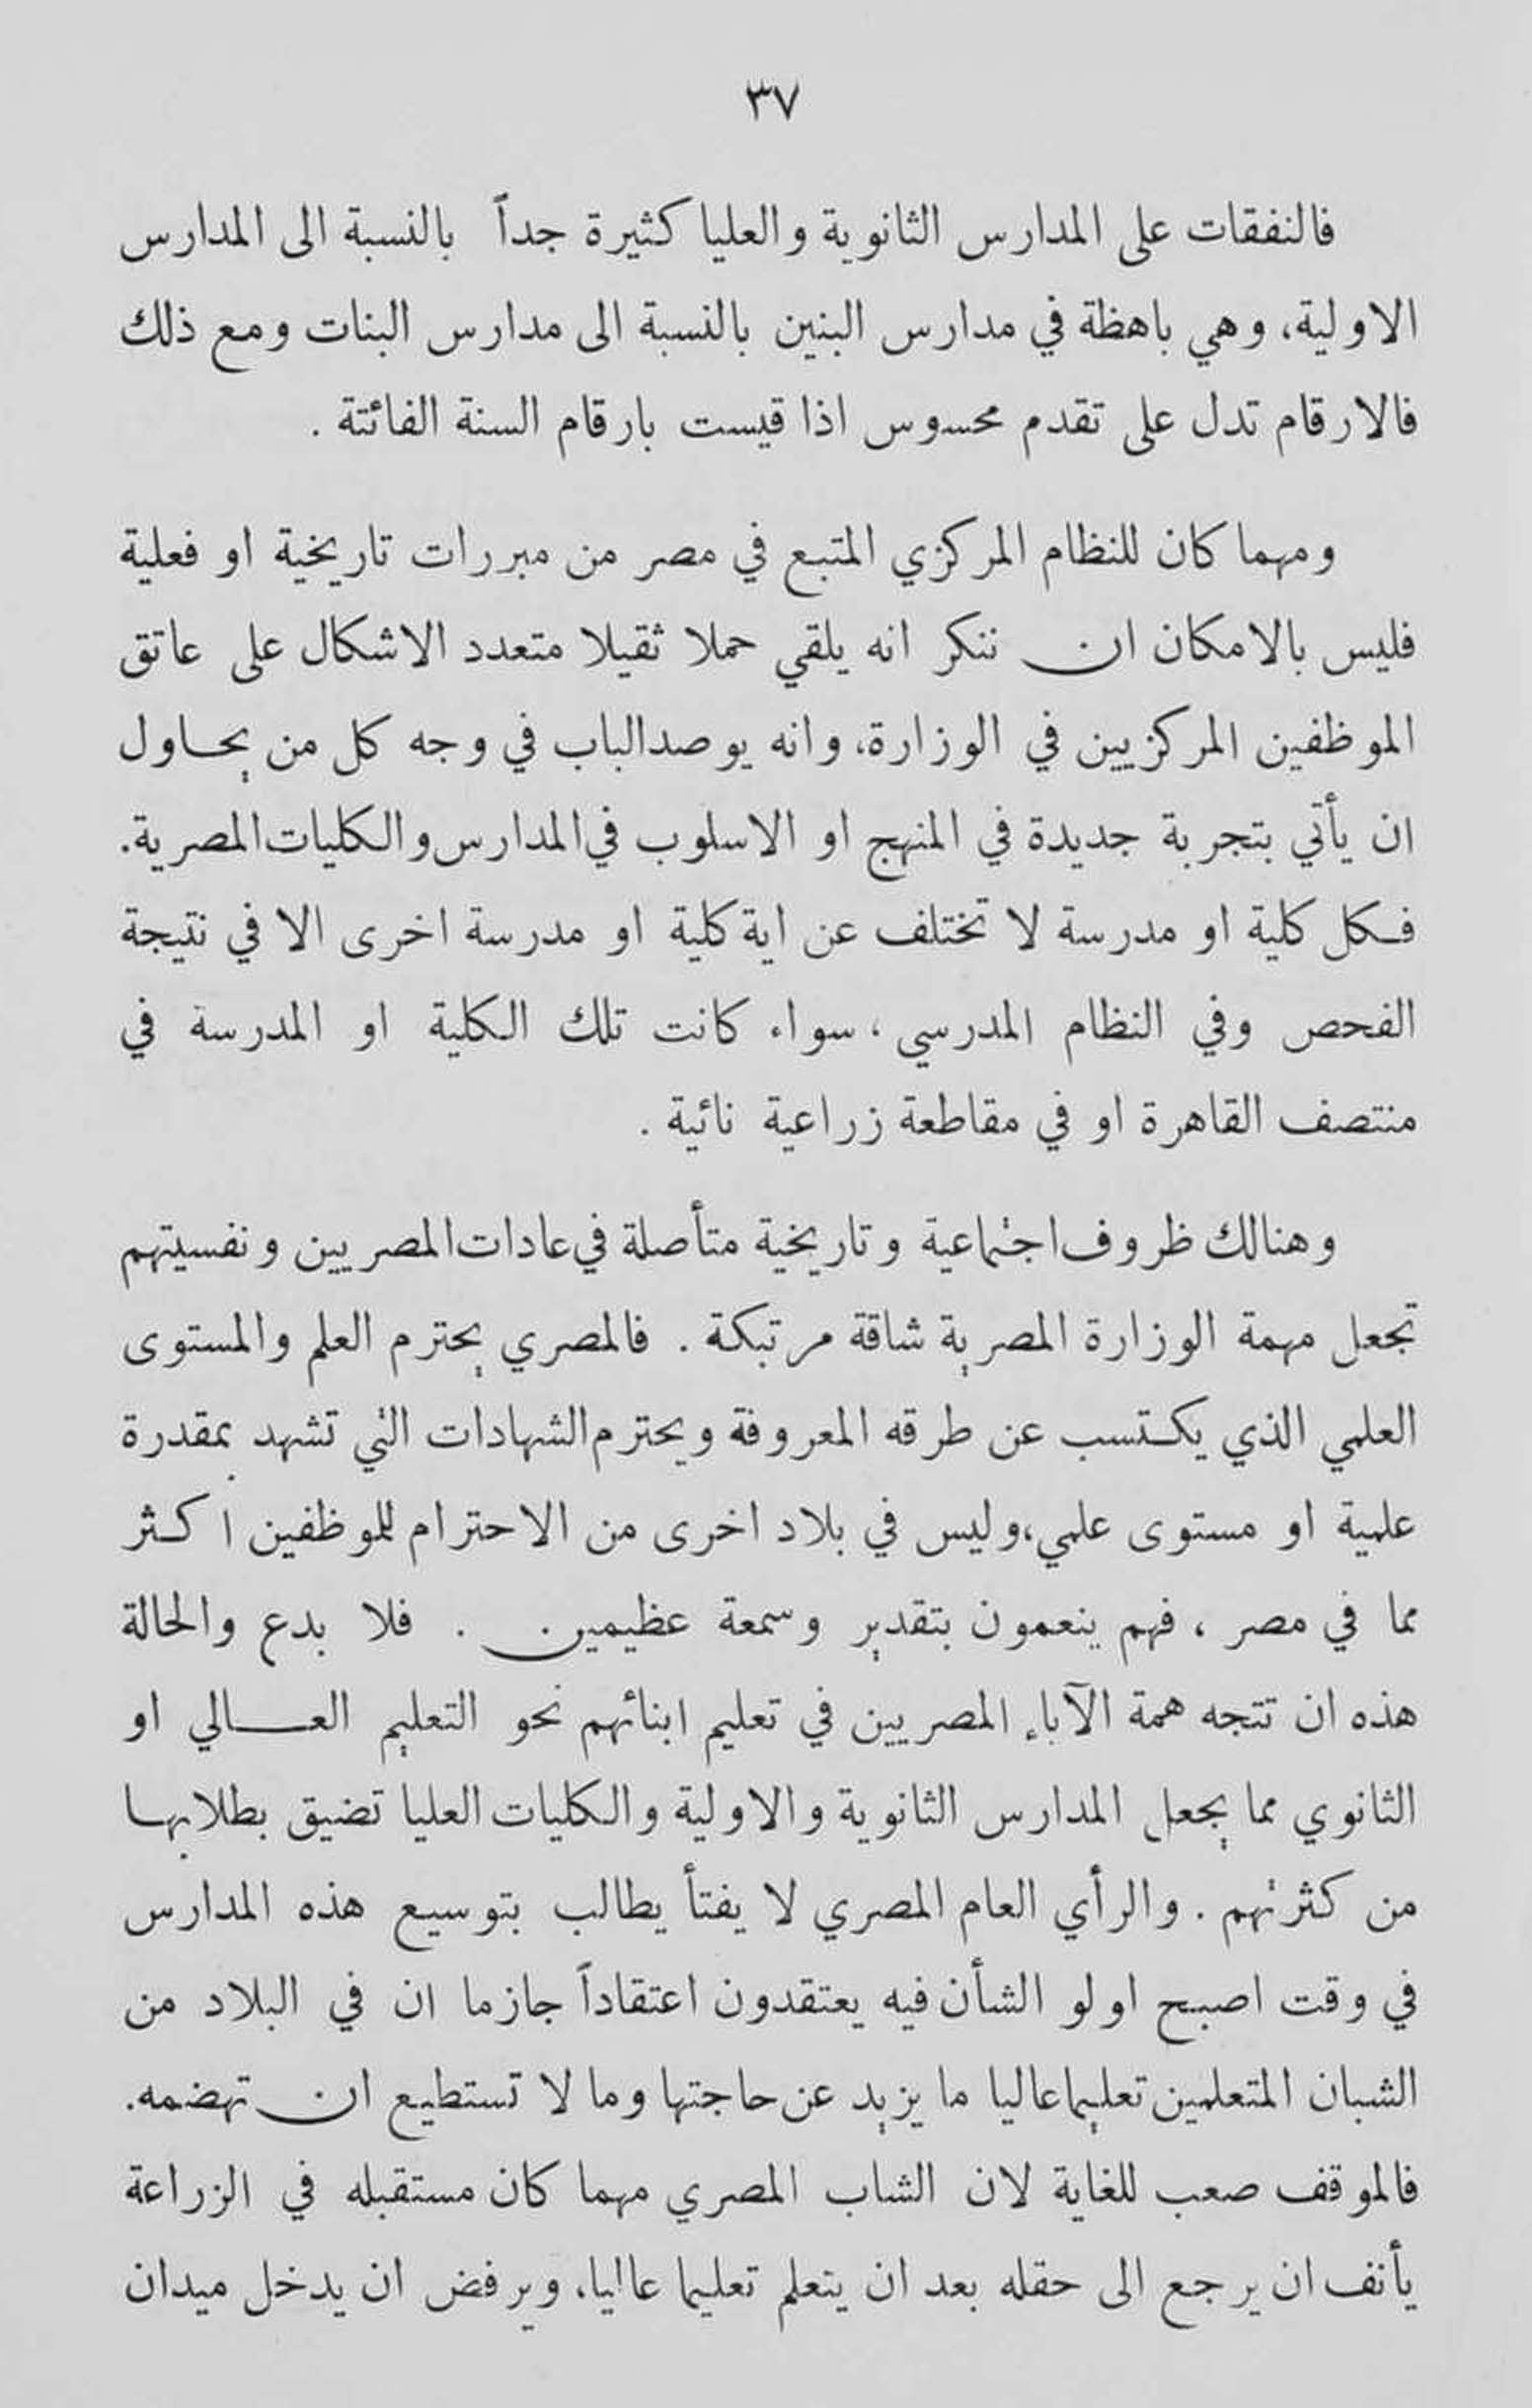 ٣٧
فالنفقات على المدارس الثانوية والعليا كثيرة جداً بالنسبة الى المدارس
الاولية، وهي باهظة في مدارس البنين بالنسبة الى مدارس البنات ومع ذلك
فالارقام تدل على تقدم محسوس اذا قيست بارقام السنة الفائتة .
ومهما كان للنظام المركزي المتبع في مصر من مبررات تاريخية او فعلية
فليس بالامكان ان ننكر انه يلقي حملا ثقيلا متعدد الاشكال على عاتق
الموظفين المركزيين في الوزارة، وانه يوصد الباب في وجه كل من يحاول
ان يأتي بتجربة جديدة في المنهج او الاسلوب في المدارس والكليات المصرية.
فكل كلية او مدرسة لا تختلف عن اية كلية او مدرسة اخرى الا في نتيجة
الفحص وفي النظام المدرسي ، سواء كانت تلك الكلية او المدرسة في
منتصف القاهرة او في مقاطعة زراعية نائية .
وهنالك ظروف اجتماعية وتاريخية متأصلة في عادات المصريين ونفسيتهم
تجعل مهمة الوزارة المصرية شاقة مرتبكة . فالمصري يحترم العلم والمستوى
العلمي الذي يكتسب عن طرقه المعروفة ويحترم الشهادات التي تشهد بمقدرة
علمية او مستوى علمي، وليس في بلاد اخرى من الاحترام للموظفين اكثر
مما في مصر ، فهم ينعمون بتقدير وسمعة عظيمين . فلا بدع والحالة
هذه ان تتجه همة الآباء المصريين في تعليم ابنائهم نحو التعليم العالي او
الثانوي مما يجعل المدارس الثانوية والاولية والكليات العليا تضيق بطلابها
من كثرتهم . والرأي العام المصري لا يفتأ يطالب بتوسيع هذه المدارس
في وقت اصبح اولو الشأن فيه يعتقدون اعتقاداً جازما ان في البلاد من
الشبان المتعلمين تعليما عاليا ما يزيد عن حاجتها وما لا تستطيع ان تهضمه.
فالموقف صعب للغاية لان الشاب المصري مهما كان مستقبله في الزراعة
يأنف ان يرجع الى حقله بعد ان يتعلم تعليما عاليا، ويرفض ان يدخل ميدان